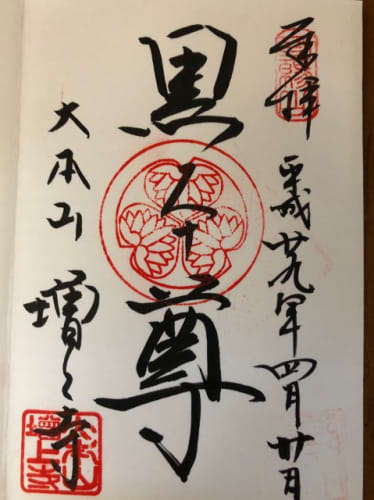 奉拝 平成廿九年四月廿日
黒本尊
大本山 増上寺
大本山
增上寺